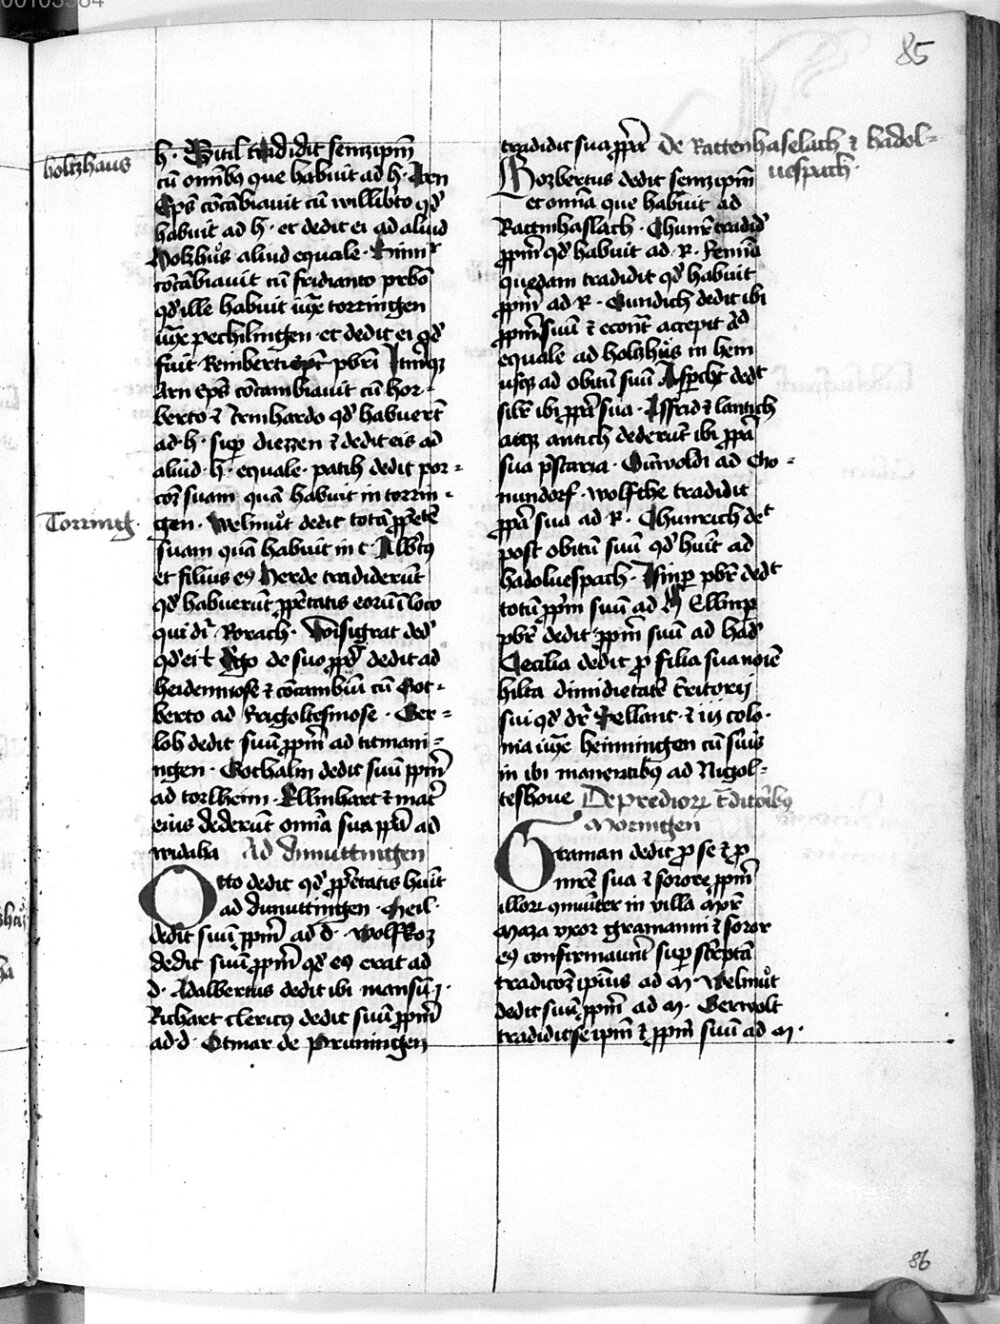 85
holtzhaus
h. Wil tradidit semzipm̄
cū om̄ibꝯ que habuit ad h. Arn
Eps̄ cōcābiauit cū willibto qd̓
habuit ad h. et dedit ei ad aliud
holzhus aliud equale.
cōcābiauit cū fridianto prbo
qd̓ ille habuit iux̄ torringen
iux̄ pechilingen. et dedit ei qd̓
fuit Reimberti pbri
Arn eps̄ cōcambiauit cū hor-
berto ⁊ Irmhardo qd̓ habuert̄
ad. h. sup diezzen ⁊ dedit eis ad
aliud. h. equale. patih dedit por=
coz̄ suam quā habuit in torrin-
Torring.
gen. Welmůt dedit totā ppetē
suam quā habuit in t. Albtꝯ
et filius eꝯ Herde tradiderūt
qd̓ habuerūt ppetatis eorū ī loco
qui dr̄ Rorach. Woisigrat ded̓
qd̓ ei t Ego de suo ppo dedit ad
heidenmose ⁊ cōcambiū cū Got-
berto ad Frigoltesmose. Ger=
loh dedit suū ppm̄ ad titmani=
ngen. Gothalm dedit suū ppm̄
ad torlheim. Ellinhart ⁊ mat̄
eius dederūt om̄ia sua ppa ad
widaha Ad Dunuttingen
Otto dedit qd̓ ppetatis huit
ad dunuttingen. Heil.
dedit suū ppm̄ ad d. wolfkoz
dedit suū ppm̄ qd̓ eꝯ erat ad
d. Adalbertus dedit ibi mansū j.
Richart clericꝯ dedit suū ppm̄
ad. d. Otmar de Pruningen
tradidit sua ppa De Rattenhaselach ⁊ hadol=
uespach.
Horbertus dedit semzipm̄
et omīa que habuit ad
Rattinhaslach. Chunr̄ tradid̓
ppm̄ qd̓ habuit ad. R. femīa
quedam tradidit qd̓ habuit
ppm̄ ad R. Gundich dedit ibi
ppm̄ suū ⁊ econt̄ accepit ad
equale ad holzhus in hem
usqꝫ ad obitū suū dedt
silr̄ ibi ppa sua. Asfrid ⁊ lantich
atqꝫ antich dederūt ibi ppa
sua p̄staria. Cūwoldi ad Cho=
nundorf. wolfche tradidit
ppa sua ad R. Chunrich det
post obitū suū qd̓ huit ad
hadoluespach. Isinp pbr̄ dedt
totū ppm̄ suū ad Ellinp
pbr̄ dedit ppm̄ suū ad had̓
Cecilia dedit p filia sua noīe
hilta dimidietatē t̄ritorij
sui qd̓ dr̄ Pellanc. ⁊ iij colo-
nia iux̄ heinningen cū suis
in ibi manentibꝯ ad Nigol=
teshoue De predioꝝ t̄ditoībꝯ
Moringen
Graman dedit p se ⁊ p
mr̄e sua ⁊ sorore ppm̄
illoꝝ qmuūter in villa mor̄
Maza vxor gramanni ⁊ soror
eꝯ confirmauūt sup sc̄ptā
tradicoz̄ ipsius ad m. Welmůt
dedit suū ppm̄ ad m. Gerwolt
tradidit seipm̄ ⁊ ppm̄ suū ad m.
86